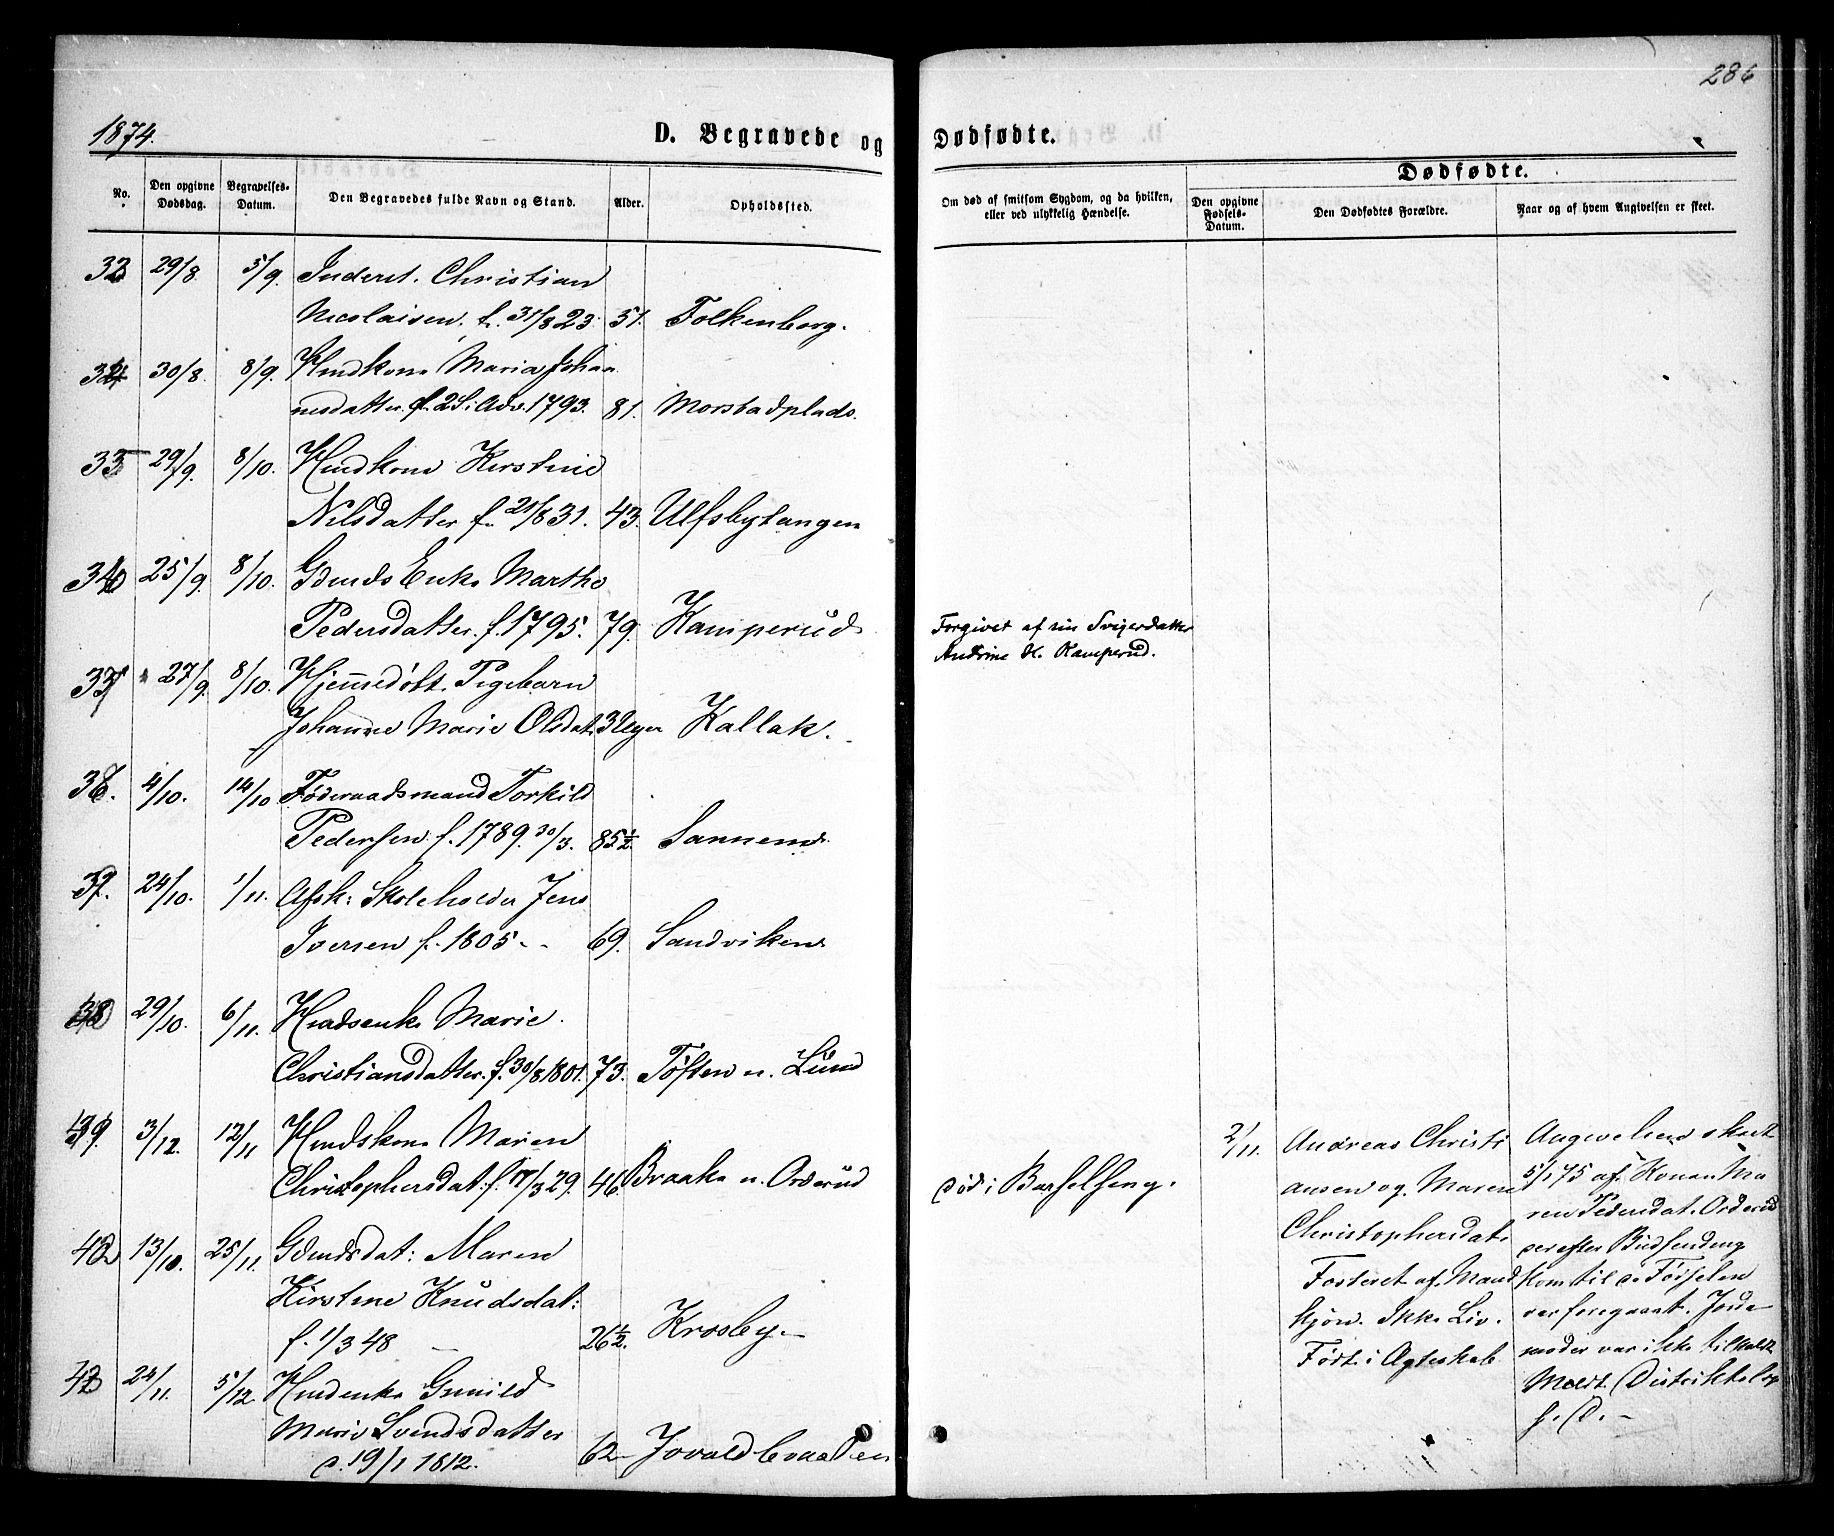 286
1874.
D. Begravede og Dødfødte.
Dødfødte.
No.
Den opgivne Dødsdag.
Begravelses-Datum.
Den Begravedes fulde Navn og Stand.
Alder.
Opholdssted.
Om død af smitsom Sygdom, og da hvilken, eller ved ulykkelig Hændelse.
Den opgivne Fødsels-Datum.
Den Dødfødtes Forældre.
Naar og af hvem Angivelsen er skeet.
29/8 5/9. Inderst. Christian
Nicolaisen. f. 31/8 23. 51. Folkenborg.
30/8. 8/9. Hmdkone Maria Johan
nesdatter. f. 2 S. i Adv. 1793. 81. Morstadplads.
35 29/9. 8/10. Hmdkone Kirstine
Nilsdatter f. 21/8 31. 43. Ulfsbytangen
25/9. 8/10. Gdmds Enke Marthe
Pedersdatter. f. 1795. 79. Kamperud
Forgivet af sin Svigerdatter
Andrine H. Kamperud.
27/9. 8/10. Hjemmedøbt Pigebarn
Johanne Marie Olsdat. 3 Uger Kallak.
4/10. 14/10 Føderaadsmand Torkild
Pedersen f. 1789. 30/3. 85½ Sannem
24/10. 1/11. Afsk: Skoleholder Jens
Iversen f. 1805 69. Sandviken
38 29/10. 6/11. Hmdsenke Marie
Christiansdatter. f. 30/8 1801. 73. Toften u. Lund
39. 3/12. 12/11 Hmdskone Maren
Christophersdat. f. 17/3 29. 46. Braake u. Orderud
død i Barselseng.
2/11. Andreas Christi
ansen og Maren
Christophersdat.
Fosteret af Mand
kjøn. Ikke Liv.
Født i Ægteskab
Angivelsen skeet
5/1 75 af Konen Ma
ren Pedersdat. Orderud
der efter Budsending
kom til da Fødselen
var foregaaet. Jorde
moder var ikke tilkaldt
Meldt Distriktslæg
13/10. 25/11. Gdmdsdat: Maren
Kirstine Knudsdat:
f. 1/3 48 26½. Krosby
24/11. 5/12. Hmdenke Gunild
Marie Svendsdatter
d. 19/1 1812. 62